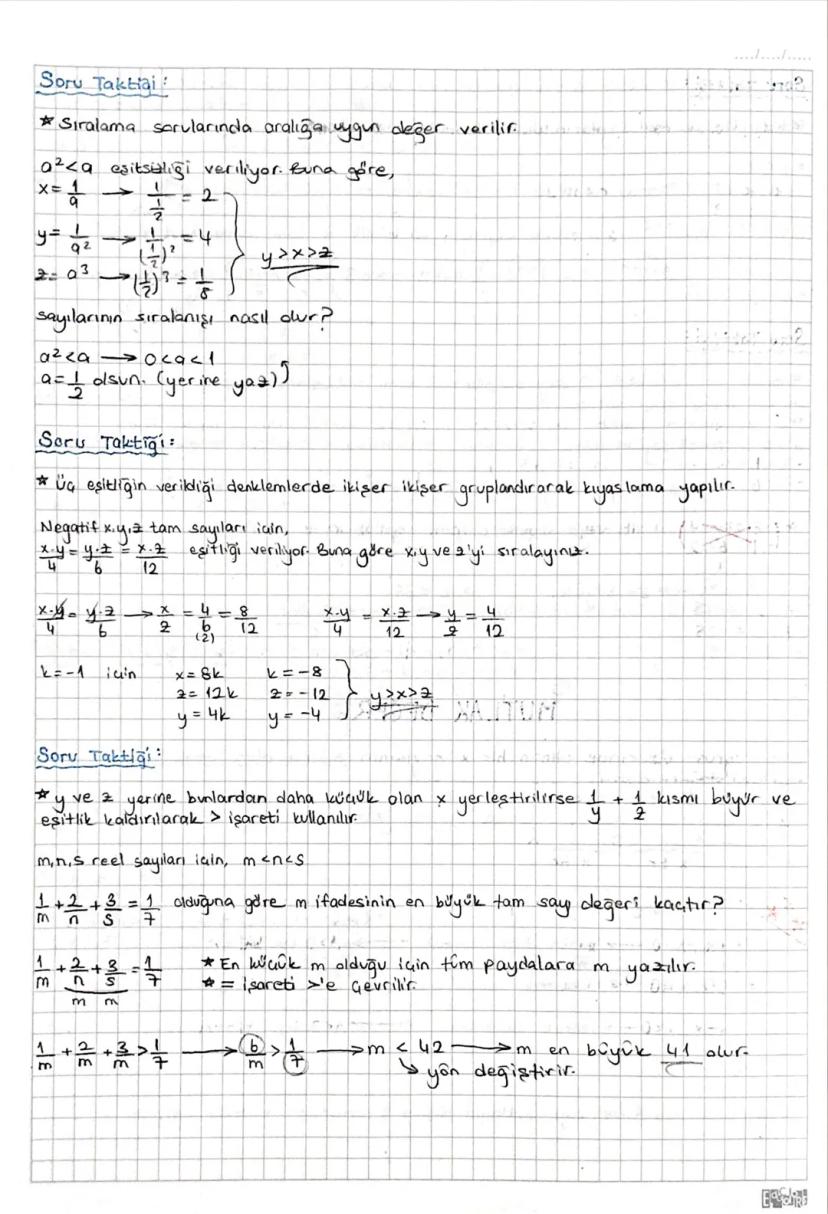 Soru Taktiği:
* Sıralama sorularında aralığa uygun değer verilir.
a²<a eşitsizliği veriliyor. Buna göre,
x = 1/a → 1/(1/2) = 2
y = 1/a² → 1/(1/2)² = 4
z = a³ → (1/2)³ = 1/8
y>x>z
sayılarının sıralanışı nasıl olur?
a²<a → 0<a<1
a = 1/2 olsun. (yerine yaz)
Soru Taktiği:
* Üç eşitliğin verildiği denklemlerde ikişer ikişer gruplandırarak kıyaslama yapılır.
Negatif x,y,z tam sayıları için,
x.y/4 = y.z/6 = x.z/12 eşitliği veriliyor. Buna göre x,y ve z'yi sıralayınız.
x.y/4 = y.z/6 → x/z = 4/6 = 8/12 x.y/4 = x.z/12 → y/z = 4/12
(2)
k=-1 için x = 8k k = -8
z = 12k z = -12 y>x>z
y = 4k y = -4
Soru Taktiği:
* y ve z yerine bunlardan daha küçük olan x yerleştirilirse 1/y + 1/z kısmı büyür ve
eşitlik kaldırılarak > işareti kullanılır.
m,n,s reel sayıları için, m<n<s
1/m + 2/n + 3/s = 1/7 olduğuna göre m ifadesinin en büyük tam sayı değeri kaçtır?
1/m + 2/n + 3/s = 1/7 * En küçük m olduğu için tüm paydalara m yazılır.
m m * = işareti >'e çevrilir.
1/m + 2/m + 3/m > 1/7 → 6/m > 1/7 → m < 42 → m en büyük 41 olur.
↳ yön değiştirir.